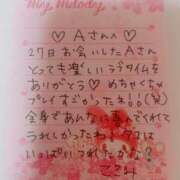 My Melody
♡ Aさんへ ♡
27日お会いしたAさん
とっても楽しいラブタイムを
ありがとう♡ めちゃくちゃ
プレイすごかったね!!(笑)
全身であんなに喜んでくれて
うれしかったなわ
いっぱいつれたかな?
ここみ